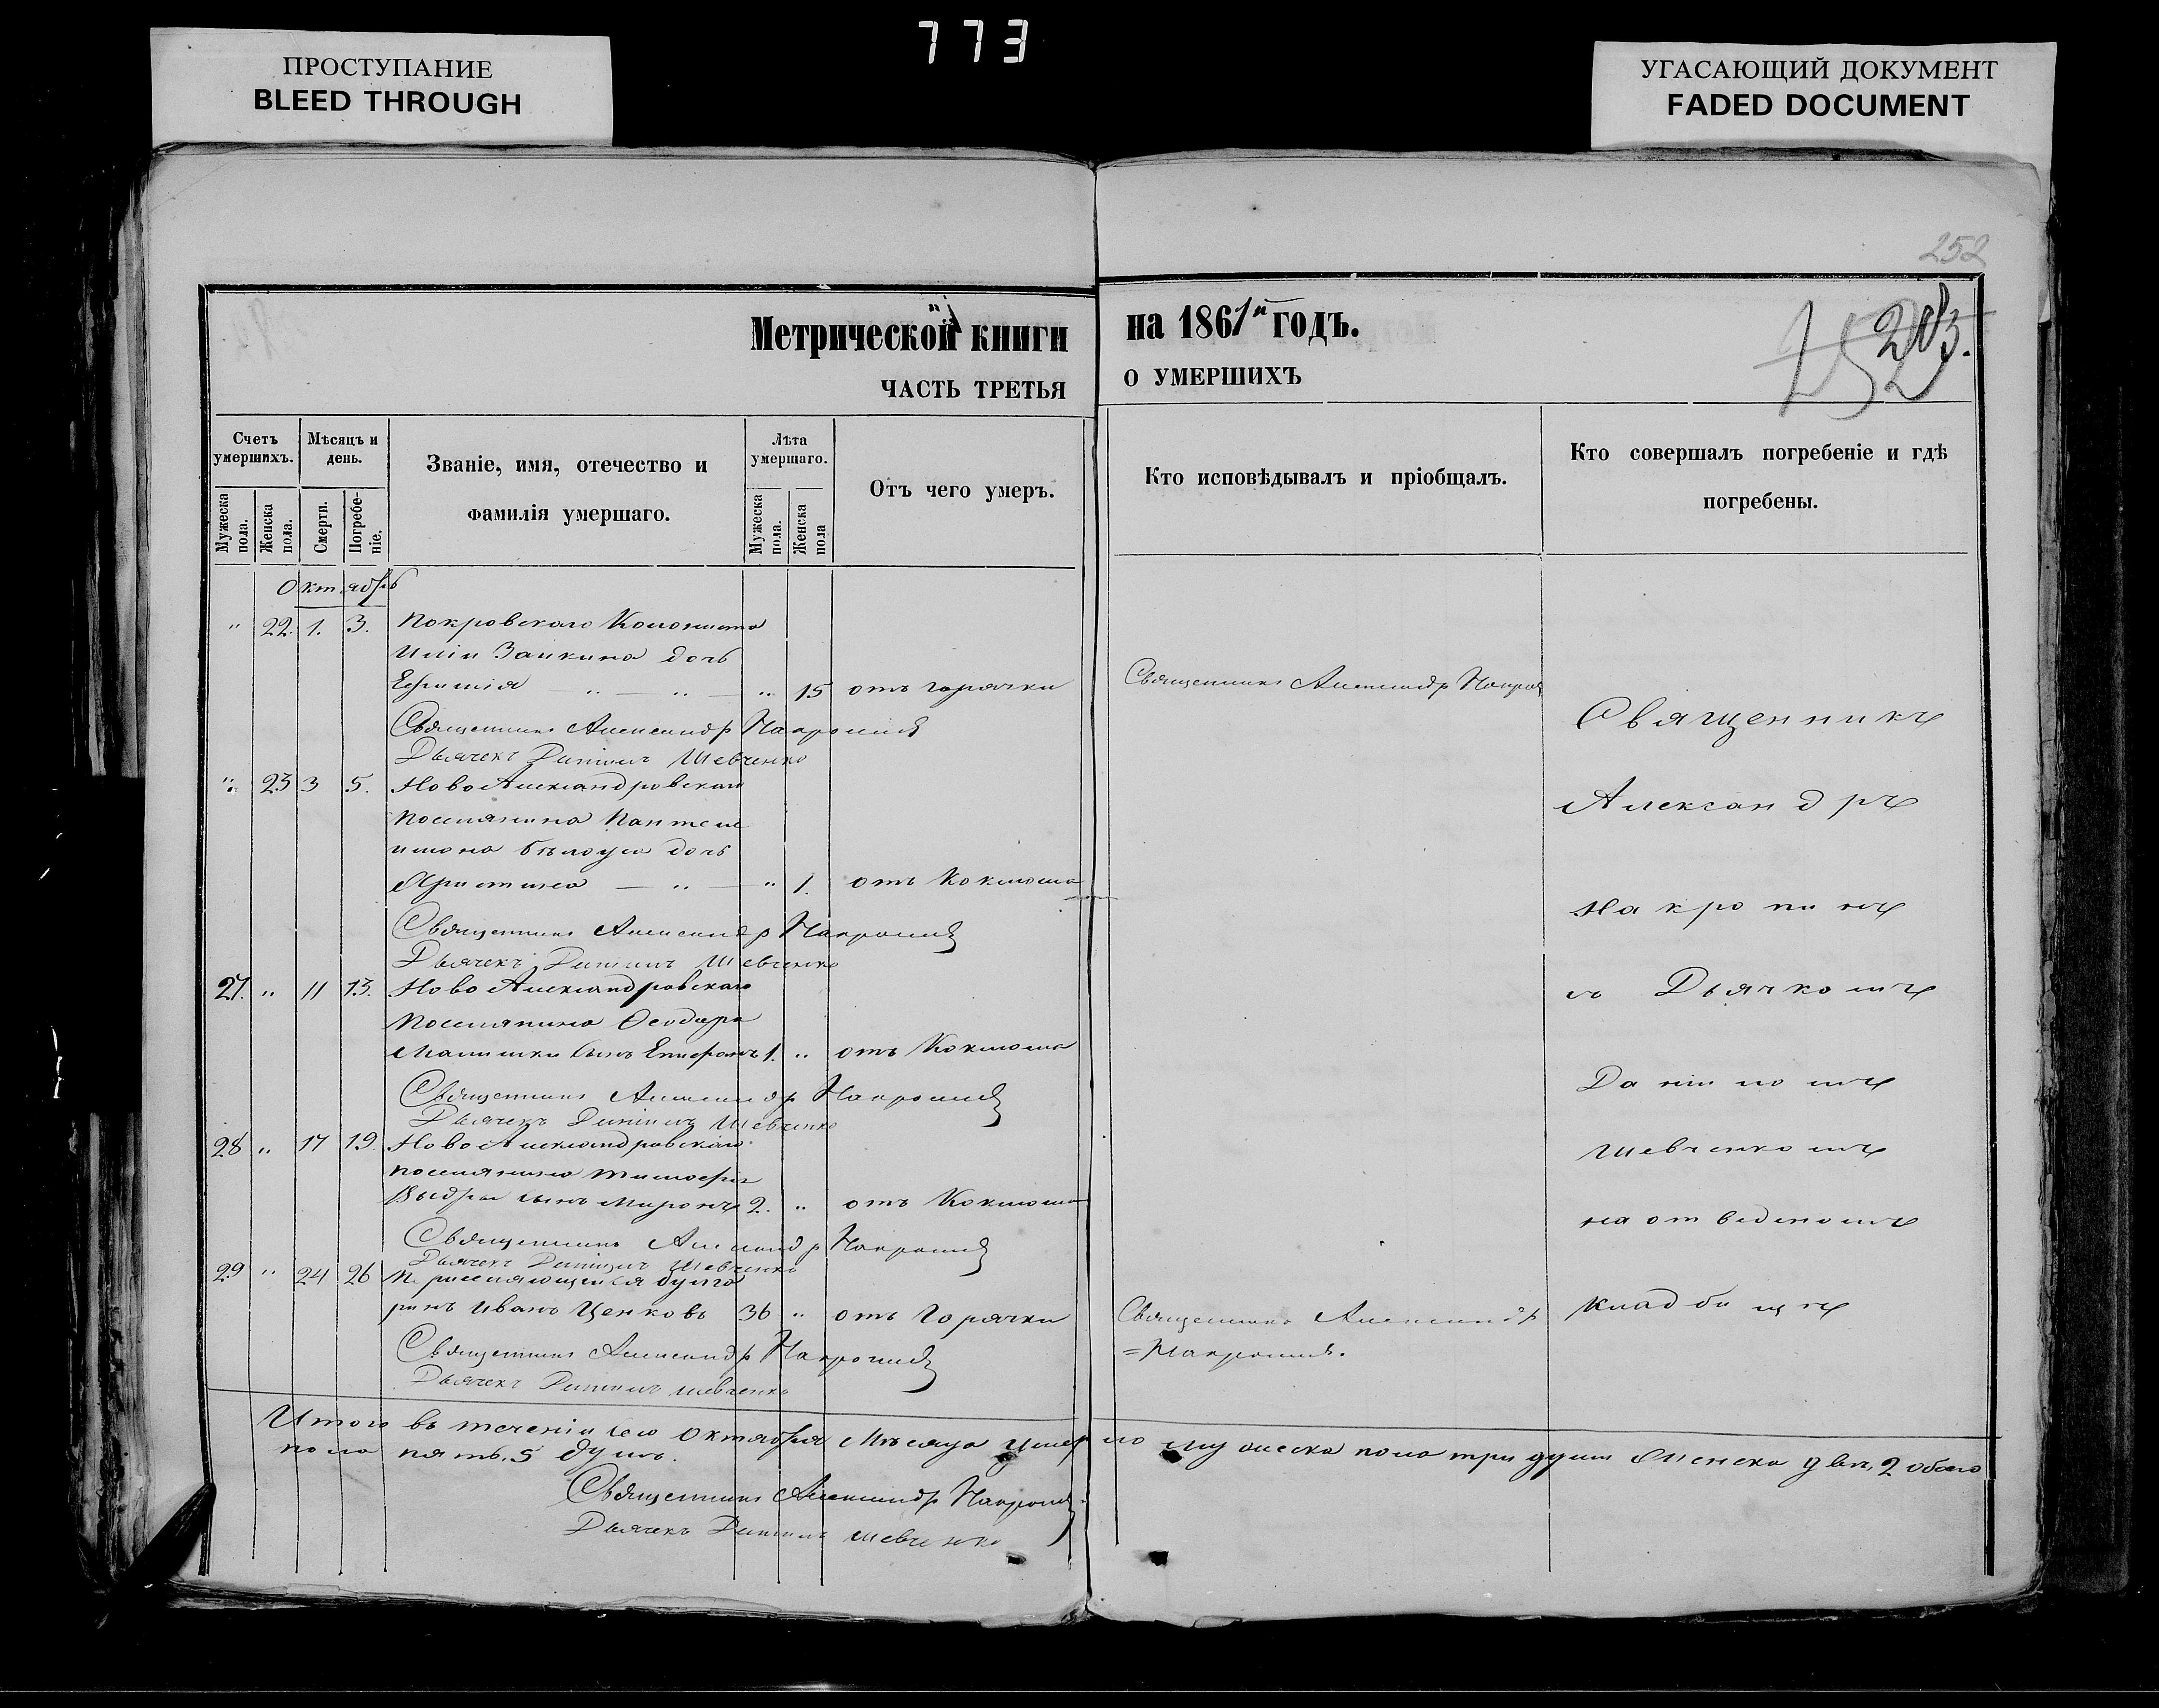 773
ПРОСТУПАНИЕ
BLEED THROUGH
УГАСАЮЩИЙ ДОКУМЕНТ
FADED DOCUMENT
252
203.
Метрической книги на 1861й годъ.
ЧАСТЬ ТРЕТЬЯ О УМЕРШИХЪ
Счетъ умершихъ.
Мужеска пола.
Женска пола.
Мѣсяцъ и день.
Смерти.
Погребе-
ніе.
Званіе, имя, отечество и
фамилія умершаго.
Лѣта умершаго.
Мужеска пола.
Женска пола
Отъ чего умеръ.
Кто исповѣдывалъ и пріобщалъ.
Кто совершалъ погребеніе и гдѣ
погребены.
Октябрь
" 22. 1. 3. Покровскаго Колониста
Иліи Заикина дочь
" 15 отъ горячки Священникъ Александръ
Священникъ Александръ
Дьячекъ Даніилъ Шевченко
" 23 3 5. Ново Александровскаго
Поселянина Пантеле
имона Бѣлоуса дочь
Христина " 1. отъ Коклюша
Священникъ Александръ
Дьячекъ Даніилъ Шевченко
27. " 11 13. Ново Александровскаго
Поселянина Ѳеодора
сынъ 1. " отъ Коклюша
Священникъ Александръ
Дьячекъ Даніилъ Шевченко
28 " 17 19. Ново Александровскаго
поселянина Тимофея
Выдры сынъ Миронъ 2. " отъ Коклюша
Священникъ Александръ
Дьячекъ Даніилъ Шевченко
29 " 24 26 Переселяющейся булга
ринъ Иванъ Ценковъ 36 " отъ Горячки Священникъ Александръ
Священникъ Александръ
Дьячекъ Даніилъ Шевченко
Священникъ
Александръ
съ Дьячкомъ
Даніиломъ
Шевченкомъ
на отведеномъ
кладбищѣ
Итого въ теченіи сего Октября Мѣсяца умерло мужеска пола три души Женска двѣ, 2 обоего
пола пять, 5 душъ.
Священникъ Александръ
Дьячекъ Даніилъ Шевченко